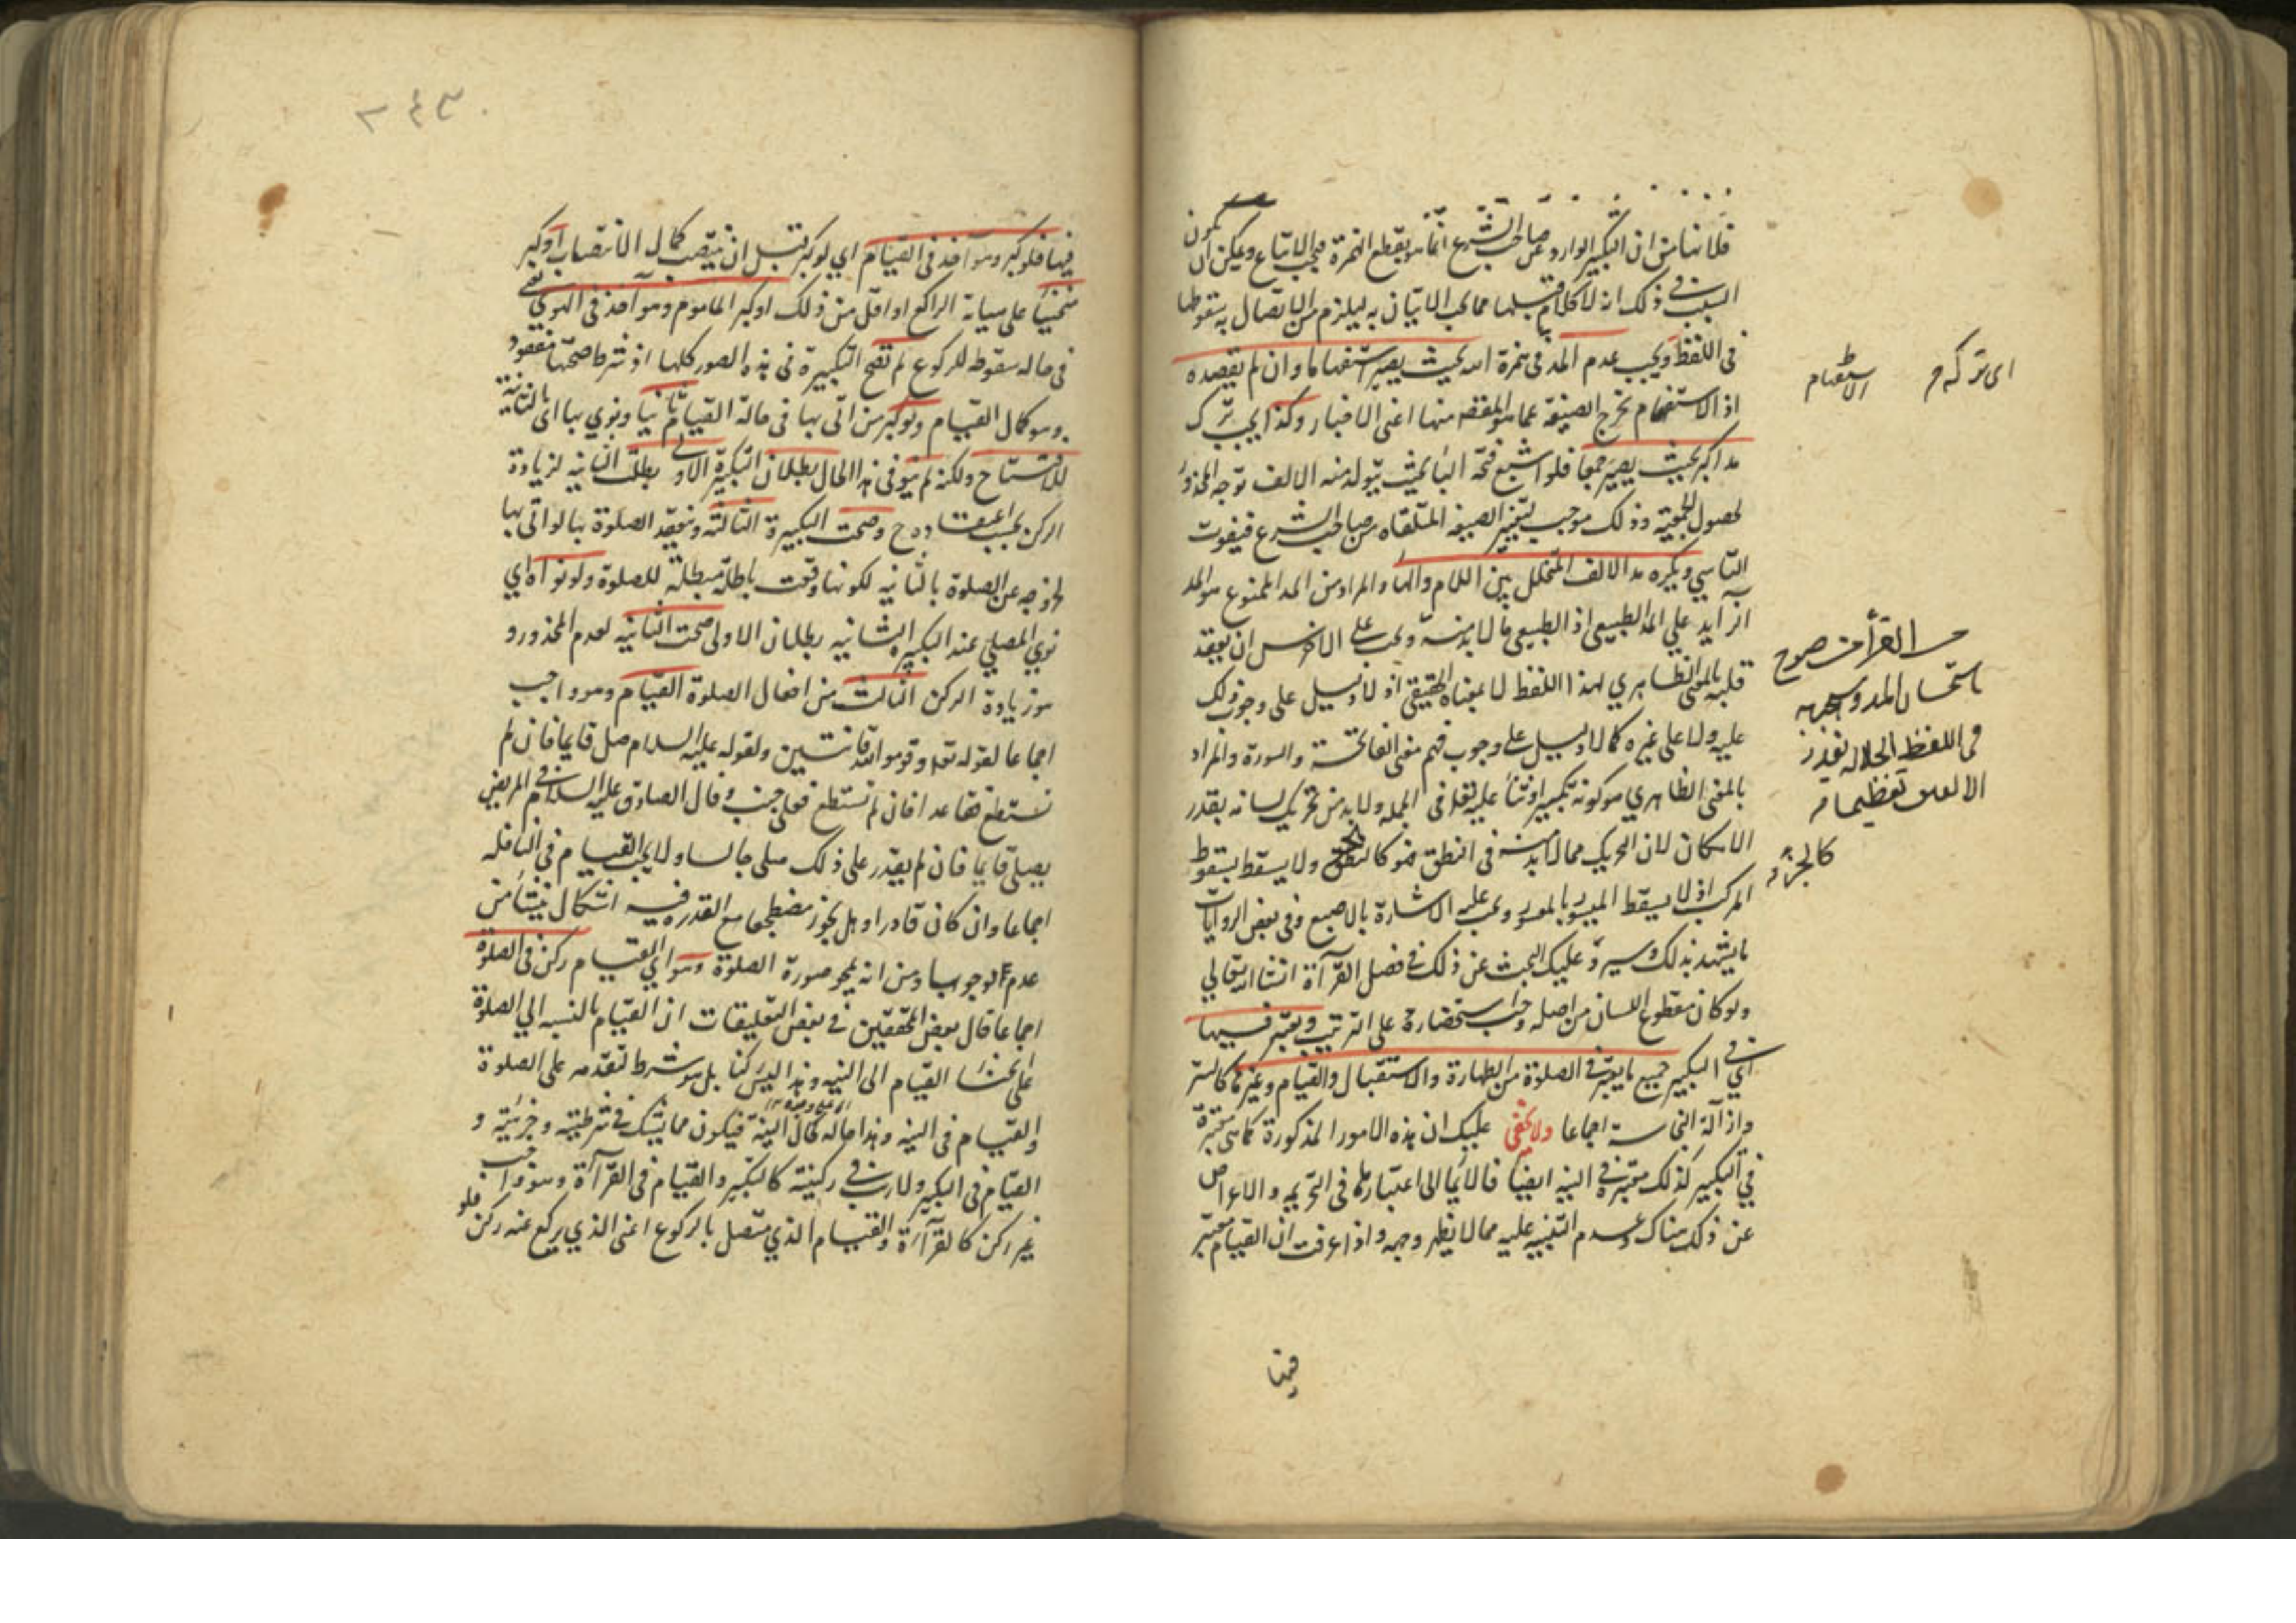 فلانا من ان التكبير الوارد عن صاحب الشرع انما هو بقطع الهمزة فيجب الاتباع ويمكن ان يكون
السبب في ذلك انه لا كلام قبلها مما يجب الاتيان به ليلزم من الاتصال به سقوطها
في اللفظ ويجب عدم المد في همزة الله بحيث يصير استفهاما وان لم يقصده
اذ الاستفهام يخرج الصيغة عما هو المقصود منها اعني الاخبار وكذا يجب ترك
مد اكبر بحيث يصير جمعا فلو اشبع فتحة الباء بحيث يتولد منه الالف توجه المحذور
لحصول الجمعية وذلك موجب لتغيير الصيغة المتلقاه من صاحب الشرع فيفوت
التاسي ويكره مد الالف المتخلل بين اللام والهاء والمراد من المد الممنوع هو المد
الزايد على المد الطبيعي اذ الطبيعي مما لا بد منه ويجب على الاخرس ان يعقد
قلبه بالمعنى الظاهري لهذا اللفظ لا بمعناه الحقيقي اذ لا دليل على وجوب ذلك
عليه ولا على غيره كما لا دليل على وجوب فهم معنى الفاتحة والسورة والمراد
بالمعنى الظاهري هو كونه تكبيرا وثناء عليه تعالى في الجملة ولا بد من تحريك لسانه بقدر
الامكان لان التحريك مما لا بد منه في النطق فهو كالجزء ولا يسقط بسقوط
المركب اذ لا يسقط الميسور بالمعسور ويجب عليه الاشارة بالاصبع وفي بعض الروايات
ما يشهد بذلك وسيرد عليك البحث عن ذلك في فصل القرآءة انشاء الله تعالى
ولو كان مقطوع اللسان من اصله وجب استحضاره على الترتيب ويعتبر فيها
اي في التكبير جميع ما يعتبر في الصلوة من الطهارة والاستقبال والقيام وغيرها كالستر
وازالة النجاسة اجماعا ولا يخفى عليك ان هذه الامور المذكورة كما هى معتبرة
في التكبير كذلك معتبرة في النية ايضا فالايماء الى اعتبارها في التحريمه والاعراض
عن ذلك هناك وعدم التنبيه عليه مما لا يظهر وجهه واذا عرفت ان القيام معتبر
فيها
اى تركه م
الاستفهام
القرأ من صرح
باستحسان المد وسببه
في اللفظ الجلاله
تعظيما
كالجزء
٢٤٣
فيها فلو كبر وهو آخذ في القيام اي لو كبر قبل ان ينتصب كمال الانتصاب او كبر
منحنيا على هيأة الراكع او اقل من ذلك او كبر الماموم وهو آخذ في الهوي
في حاله سقوطه للركوع لم تصح التكبيرة في هذه الصور كلها اذ شرط صحتها مفقود
وهو كمال القيام ولو كبر من اتى بها في حالة القيام ثانيا ونوي بها اى بالثانية
للافتتاح ولكنه لم ينو في هذا الحال بطلان التكبيرة الاولى بطلت الثانيه لزيادة
الركن بحسب اعتقاده ح وصحت التكبيرة الثالثة وينعقد الصلوة بها لو اتى بها
لخروجه عن الصلوة بالثانيه لكونها وقعت باطلة مبطلة للصلوة ولو نواه اي
نوي المصلي عند التكبيره الثانيه بطلان الاولى صحت الثانيه لعدم المحذور و
هو زيادة الركن الثالث من افعال الصلوة القيام وهو واجب
اجماعا لقوله تعالى وقوموا لله قانتين ولقوله عليه السلام صل قايما فان لم
تستطع فقاعدا فان لم تستطع فعلى جنب وقال الصادق عليه السلام في المريض
يصلي قايما فان لم يقدر على ذلك صلى جالسا ولا يجب القيام في النافله
اجماعا وان كان قادرا وهل يجوز مضطجعا مع القدره فيه اشكال ينشأ من
عدم الوجوب ومن انه يمحو صورة الصلوة وهو اي القيام ركن في الصلوة
اجماعا قال بعض المحققين في بعض التعليقات ان القيام بالنسبه الى الصلوة
على انحاء القيام الى النيه وهذا ليس ركنا بل هو شرط لتقدمه على الصلوة
والقيام في النيه وهذا حاله كحال النية فيكون مما يشك في شرطيته وجزئيته و
القيام في التكبير ولا ريب في ركنيته كالتكبير والقيام في القرآءة وهو واجب
غير ركن كالقرآءة والقيام الذي متصل بالركوع اعني الذي يركع عنه ركن فلو